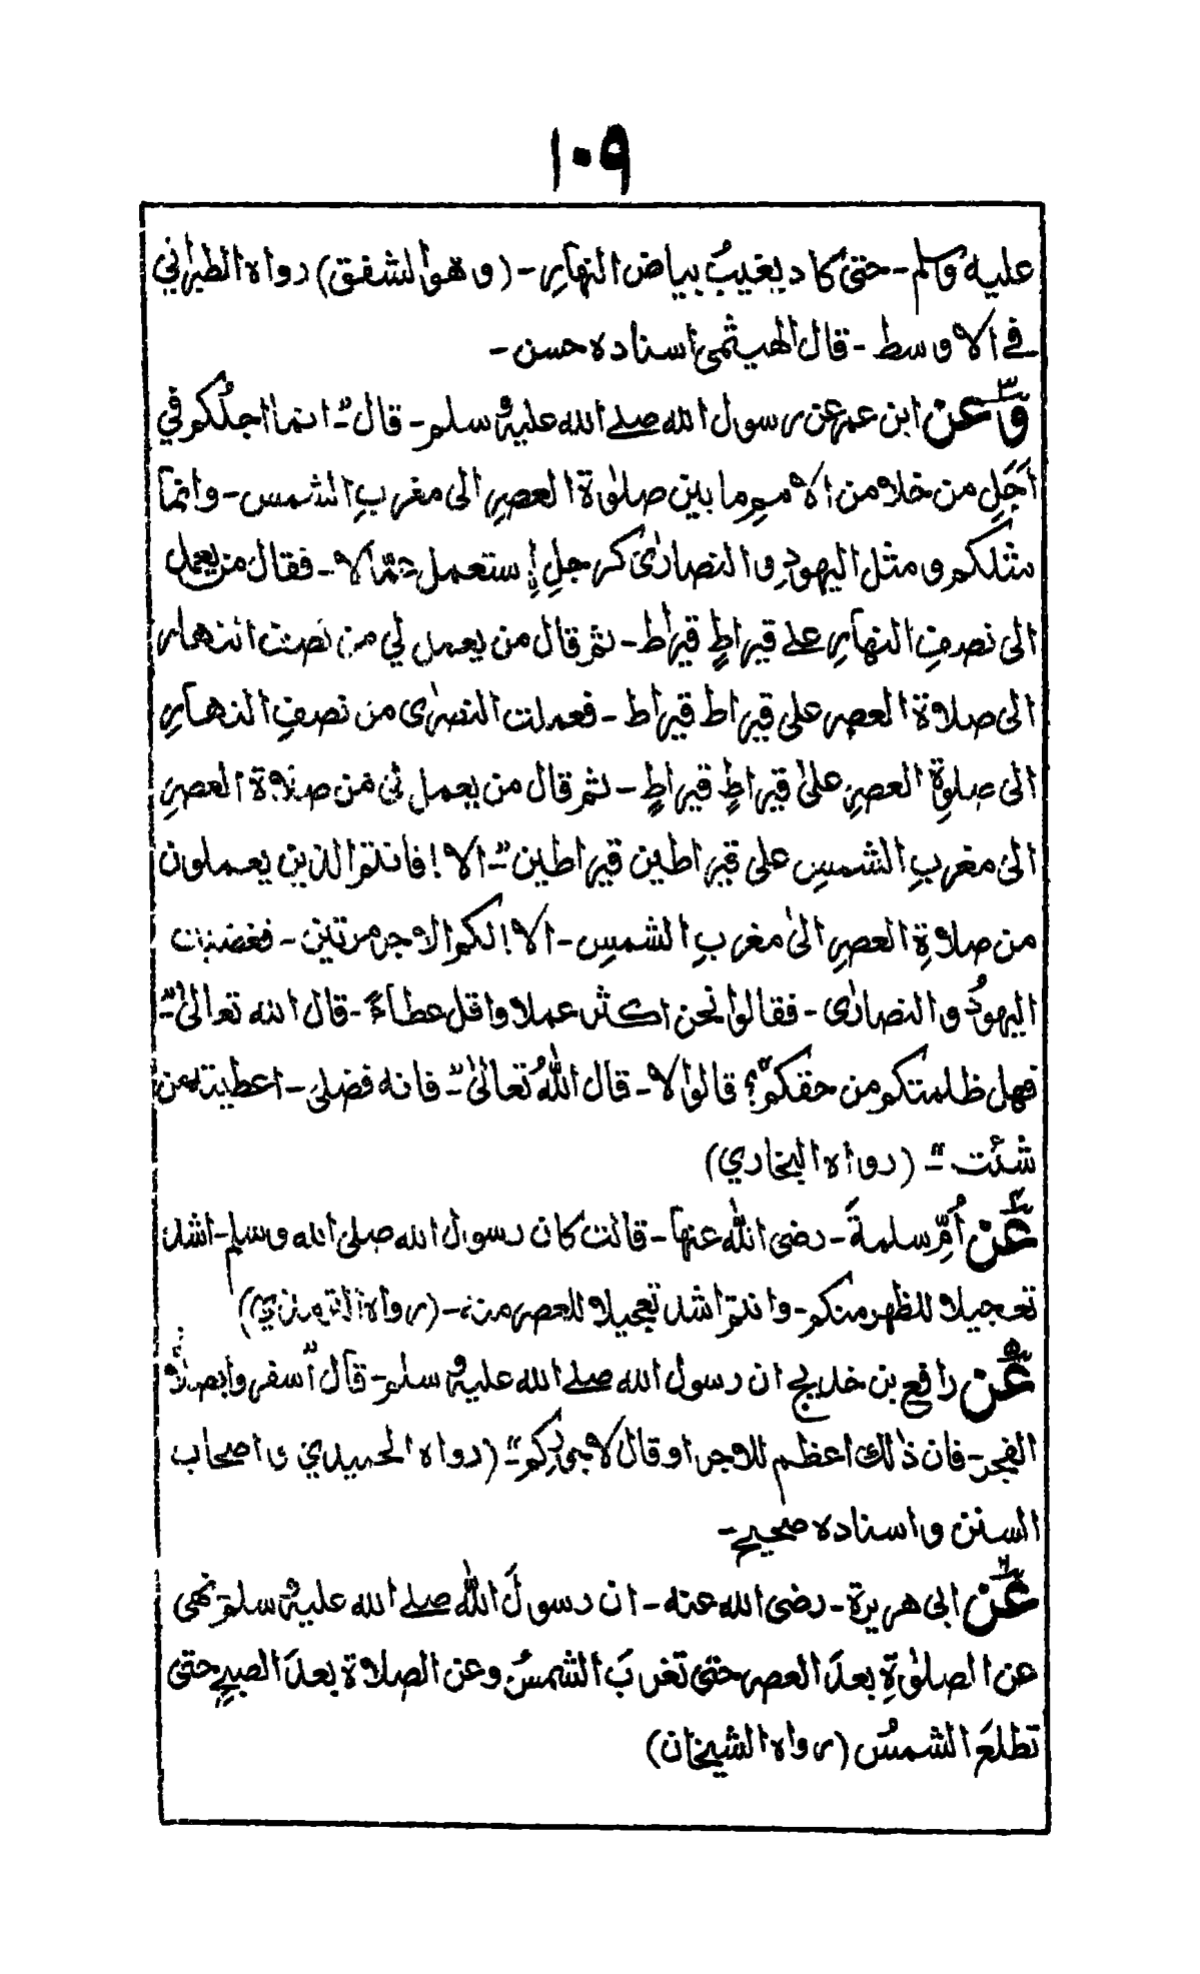 ١٠٩
عليه وسلم - حتى كاد يغيبُ بياض النهارِ - (وهو الشفق) رواه الطبراني
في الاوسط - قال الهيثمى اسناده حسن -
٣ وعن ابن عمر عن رسول الله صلے الله عليه وسلم - قال" انما اجلكم في
اَجَلِ من خلا من الامم ما بين صلوٰة العصرِ الى مغربِ الشمس - وانما
مثلكم ومثل اليهودِ والنصارىٰ كرجلٍ إستعمل عمّالا - فقال من يعمل
الى نصفِ النهارِ علے قيراطٍ قيراط - ثم قال من يعمل لي من نصف النهار
الى صلاة العصر على قيراط قيراط - فعملت النصرٰى من نصفِ النهارِ
الى صلوةِ العصرِ علىٰ قيراطٍ قيراطٍ - ثم قال من يعمل لى من صلاة العصرِ
الى مغربِ الشمسِ على قيراطين قيراطين" - الا! فانتم الذين يعملون
من صلاةِ العصرِ الىٰ مغربِ الشمسِ - الا! لكم الاجر مرتين - فغضبت
اليهودُ والنصارٰى - فقالوا نحن اكثر عملا واقل عطاءً - قال الله تعالىٰ"
فهل ظلمتكم من حقكم"؟ قالوا لا - قال اللهُ تعالىٰ" - فانه فضلى - اعطيته من
شئت" - (رواه البخاري)
٤ عن اُمِّ سلمةَ - رضى الله عنها - قالت كان رسول الله صلى الله وسلم - اشد
تعجيلا للظهر منكم - وانتم اشد تعجيلا للعصر منه - (رواه الترمذي)
٥ عن رافع بن خديج ان رسول الله صلے الله عليه وسلم - قال" اسفروا بصلوٰة
الفجر - فان ذٰلك اعظم للاجر او قال لاجورِكم" - (رواه الحميدي واصحاب
السنن واسناده صحيح -
٦ عن ابى هريرة - رضى الله عنه - ان رسولَ الله صلے الله عليه وسلم نهى
عن الصلوٰةِ بعدَ العصر حتى تغربَ الشمسُ وعن الصلاة بعدَ الصبحِ حتى
تطلعَ الشمسُ (رواه الشيخان)